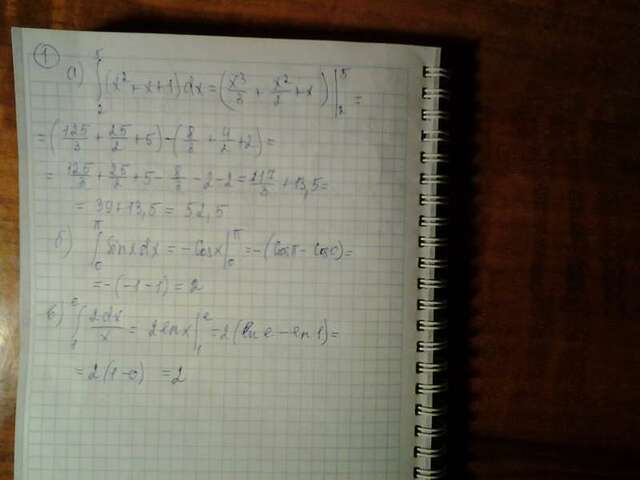 1
а) ∫₂⁵ (x² + x + 1) dx = (x³/3 + x²/2 + x) |₂⁵ =
= (125/3 + 25/2 + 5) - (8/3 + 4/2 + 2) =
= 125/3 + 25/2 + 5 - 8/3 - 2 - 2 = 117/3 + 13,5 =
= 39 + 13,5 = 52,5
б) ∫₀^π sinxdx = -cosx |₀^π = -(cosπ - cos0) =
= -(-1-1) = 2
в) ∫₁^e 2dx/x = 2lnx |₁^e = 2(ln e - ln 1) =
= 2(1-0) = 2